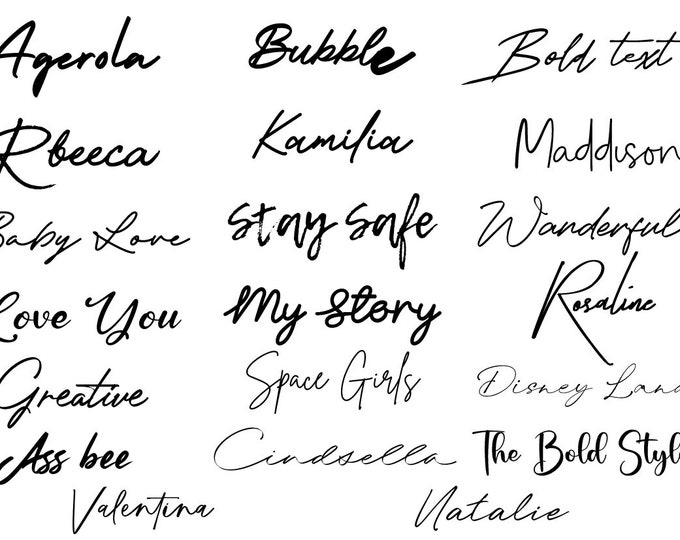 Agerola Bubble Bold text
Rbeeca Kamilia Maddison
Baby Love Stay Safe Wanderful
Love You My Story Rosaline
Greative Space Girls Disney Land
Ass bee Cindsella The Bold Styl
Valentina Natalie